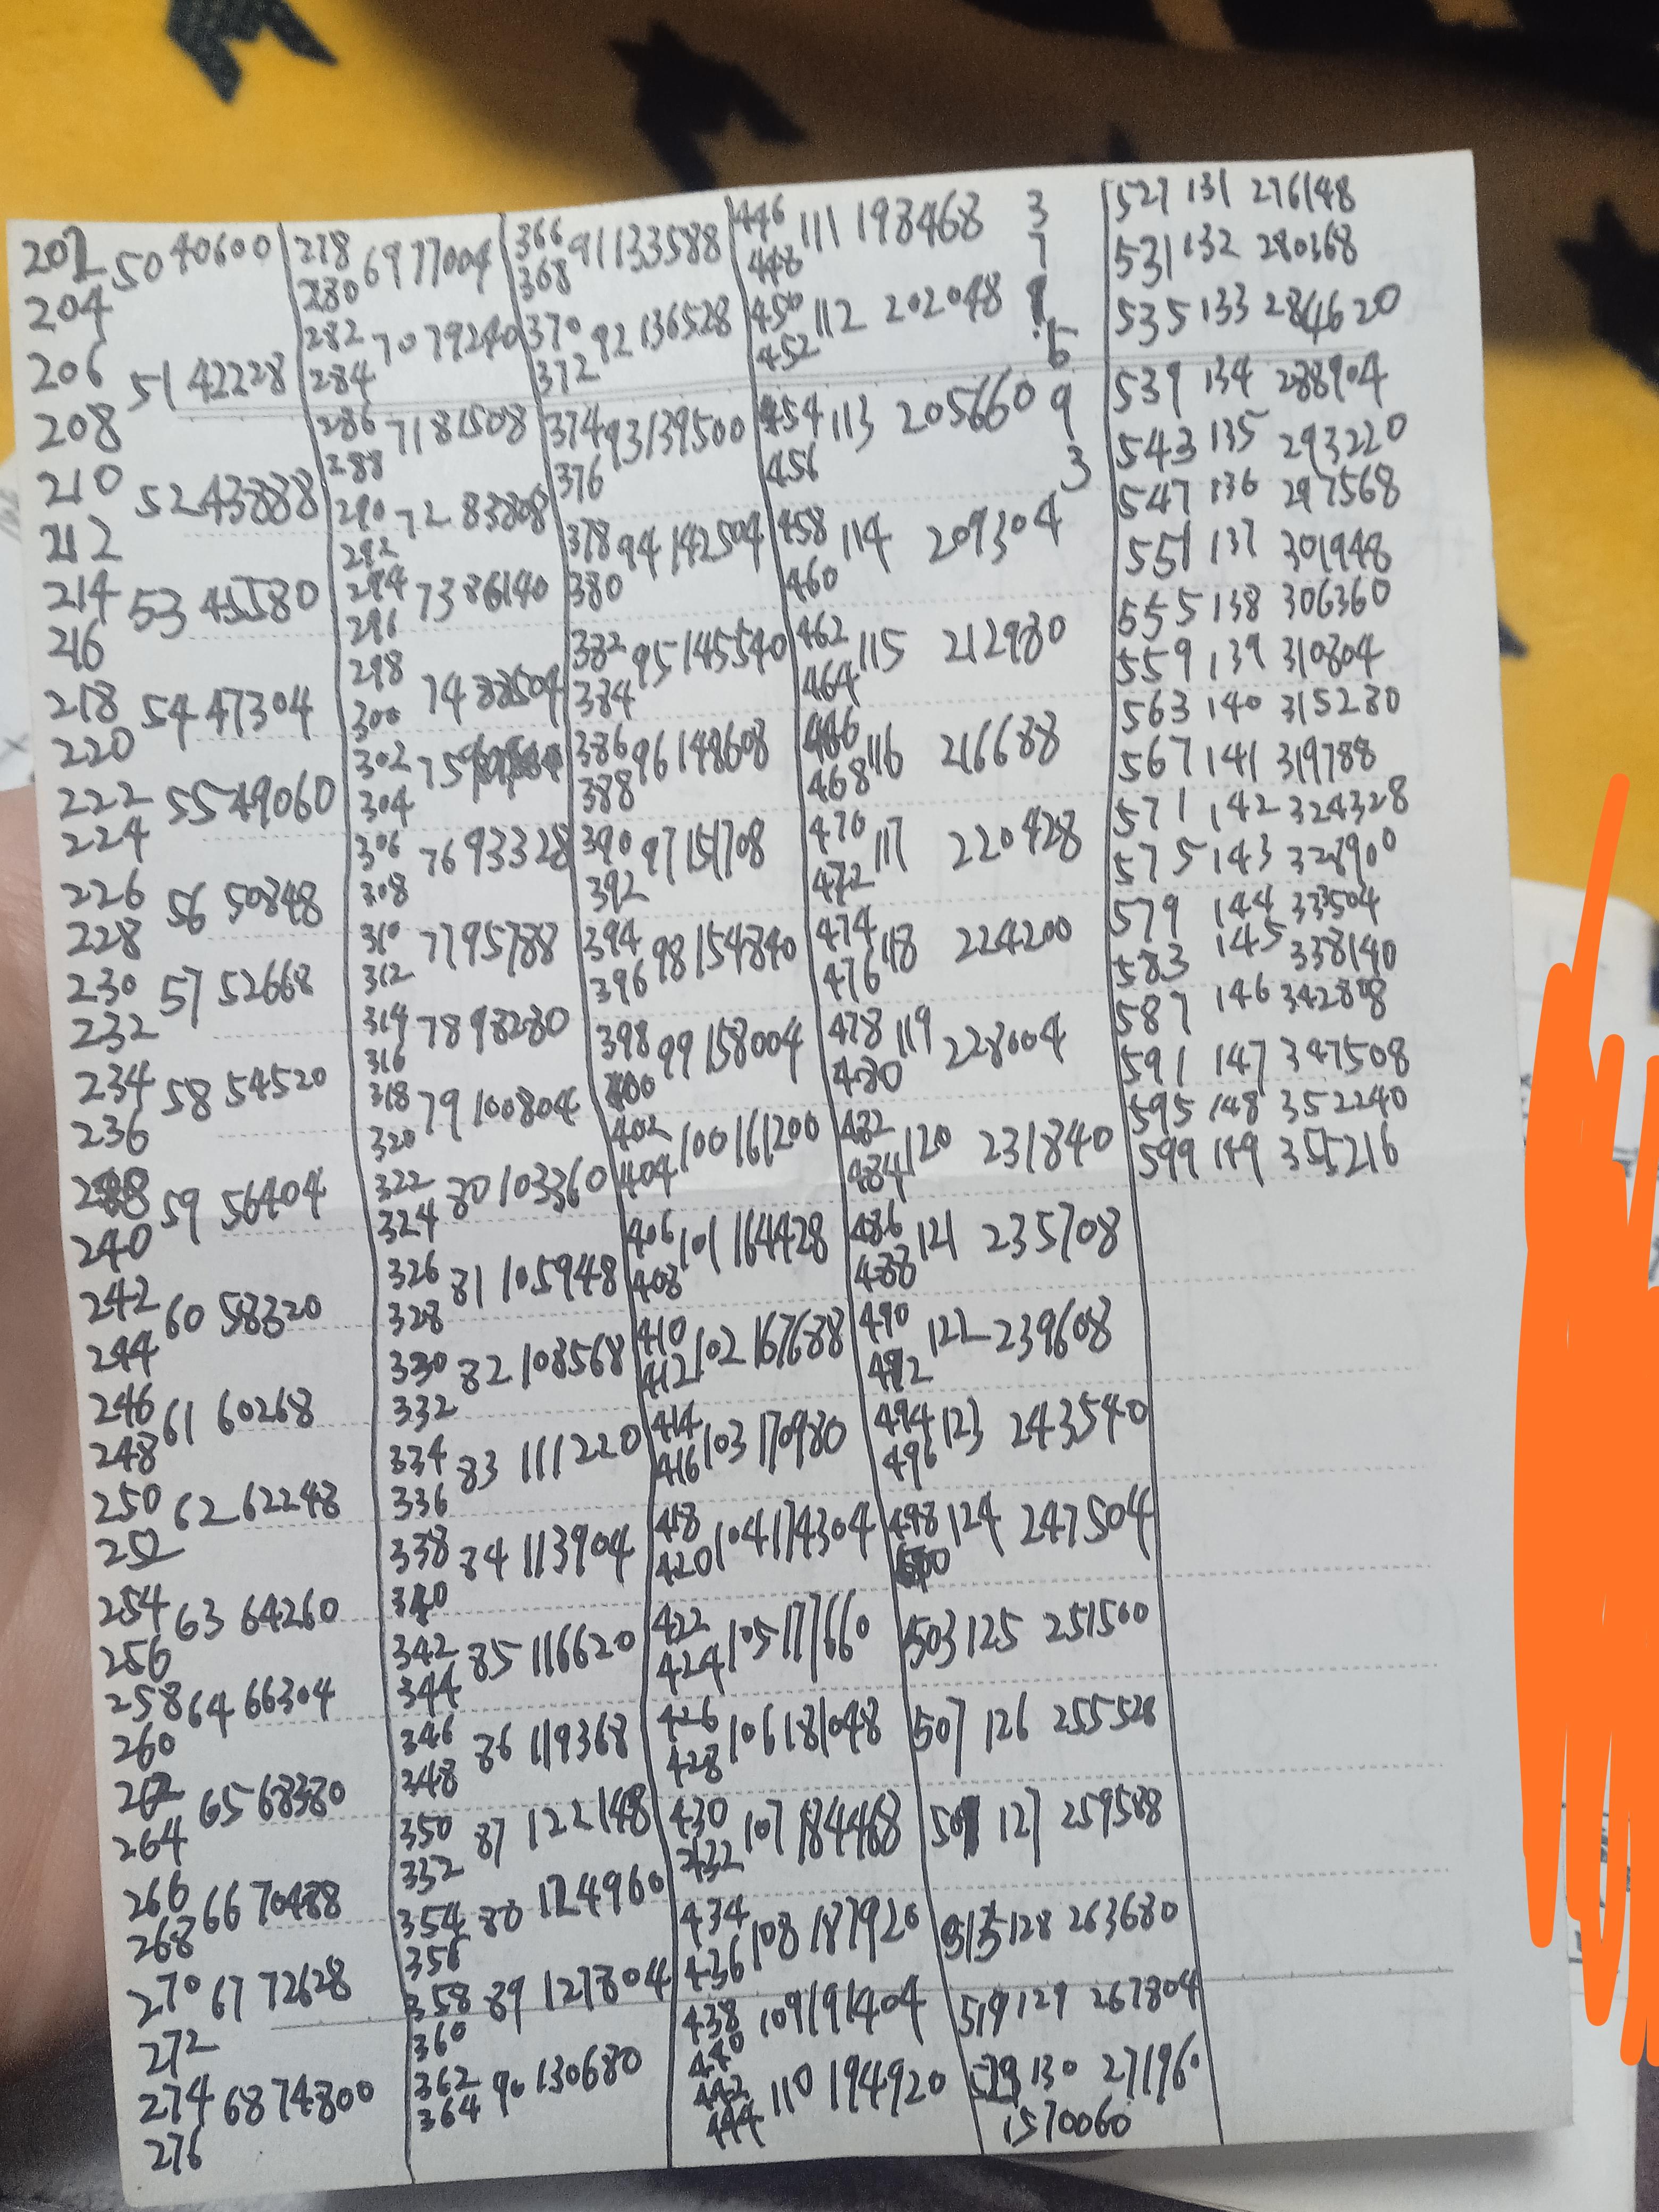 202
50 40600
204
206
51 42228
208
210
52 43888
212
214
53 45580
216
218
54 47304
220
222
55 49060
224
226
56 50848
228
230
57 52668
232
234
58 54520
236
238
59 56404
240
242
60 58320
244
246
61 60268
248
250
62 62248
252
254
63 64260
256
258
64 66304
260
262
65 68380
264
266
66 70488
268
270
67 72628
272
274
68 74800
276
278
69 77004
280
282
70 79240
284
286
71 81508
288
290
72 83808
292
294
73 86140
296
298
74 88504
300
302
75
304
306
76 93328
308
310
77 95788
312
314
78 98280
316
318
79 100804
320
322
80 103360
324
326
81 105948
328
330
82 108568
332
334
83 111220
336
338
84 113904
340
342
85 116620
344
346
86 119368
348
350
87 122148
352
354
88 124960
356
358
89 127804
360
362
90 130680
364
366
91 133588
368
370
92 136528
372
374
93 139500
376
378
94 142504
380
382
95 145540
384
386
96 148608
388
390
97 151708
392
394
98 154840
396
398
99 158004
400
402
100 161200
404
406
101 164428
408
410
102 167688
412
414
103 170980
416
418
104 174304
420
422
105 177660
424
426
106 181048
428
430
107 184468
432
434
108 187920
436
438
109 191404
440
442
110 194920
444
446
111 198468
448
450
112 202048
452
454
113 205660
456
458
114 209304
460
462
115 212980
464
466
116 216688
468
470
117 220428
472
474
118 224200
476
478
119 228004
480
482
120 231840
484
486
121 235708
488
490
122 239608
492
494
123 243540
496
498
124 247504
500
503 125 251500
507 126 255528
127 259588
515 128 263680
519 129 267804
523 130 271960
1570060
3
7
5
9
3
527 131 276148
531 132 280368
535 133 284620
539 134 288904
543 135 293220
547 136 297568
551 137 301948
555 138 306360
559 139 310804
563 140 315280
567 141 319788
571 142 324328
575 143 328900
579 144 333504
583 145 338140
587 146 342808
591 147 347508
595 148 352240
599 149 355216